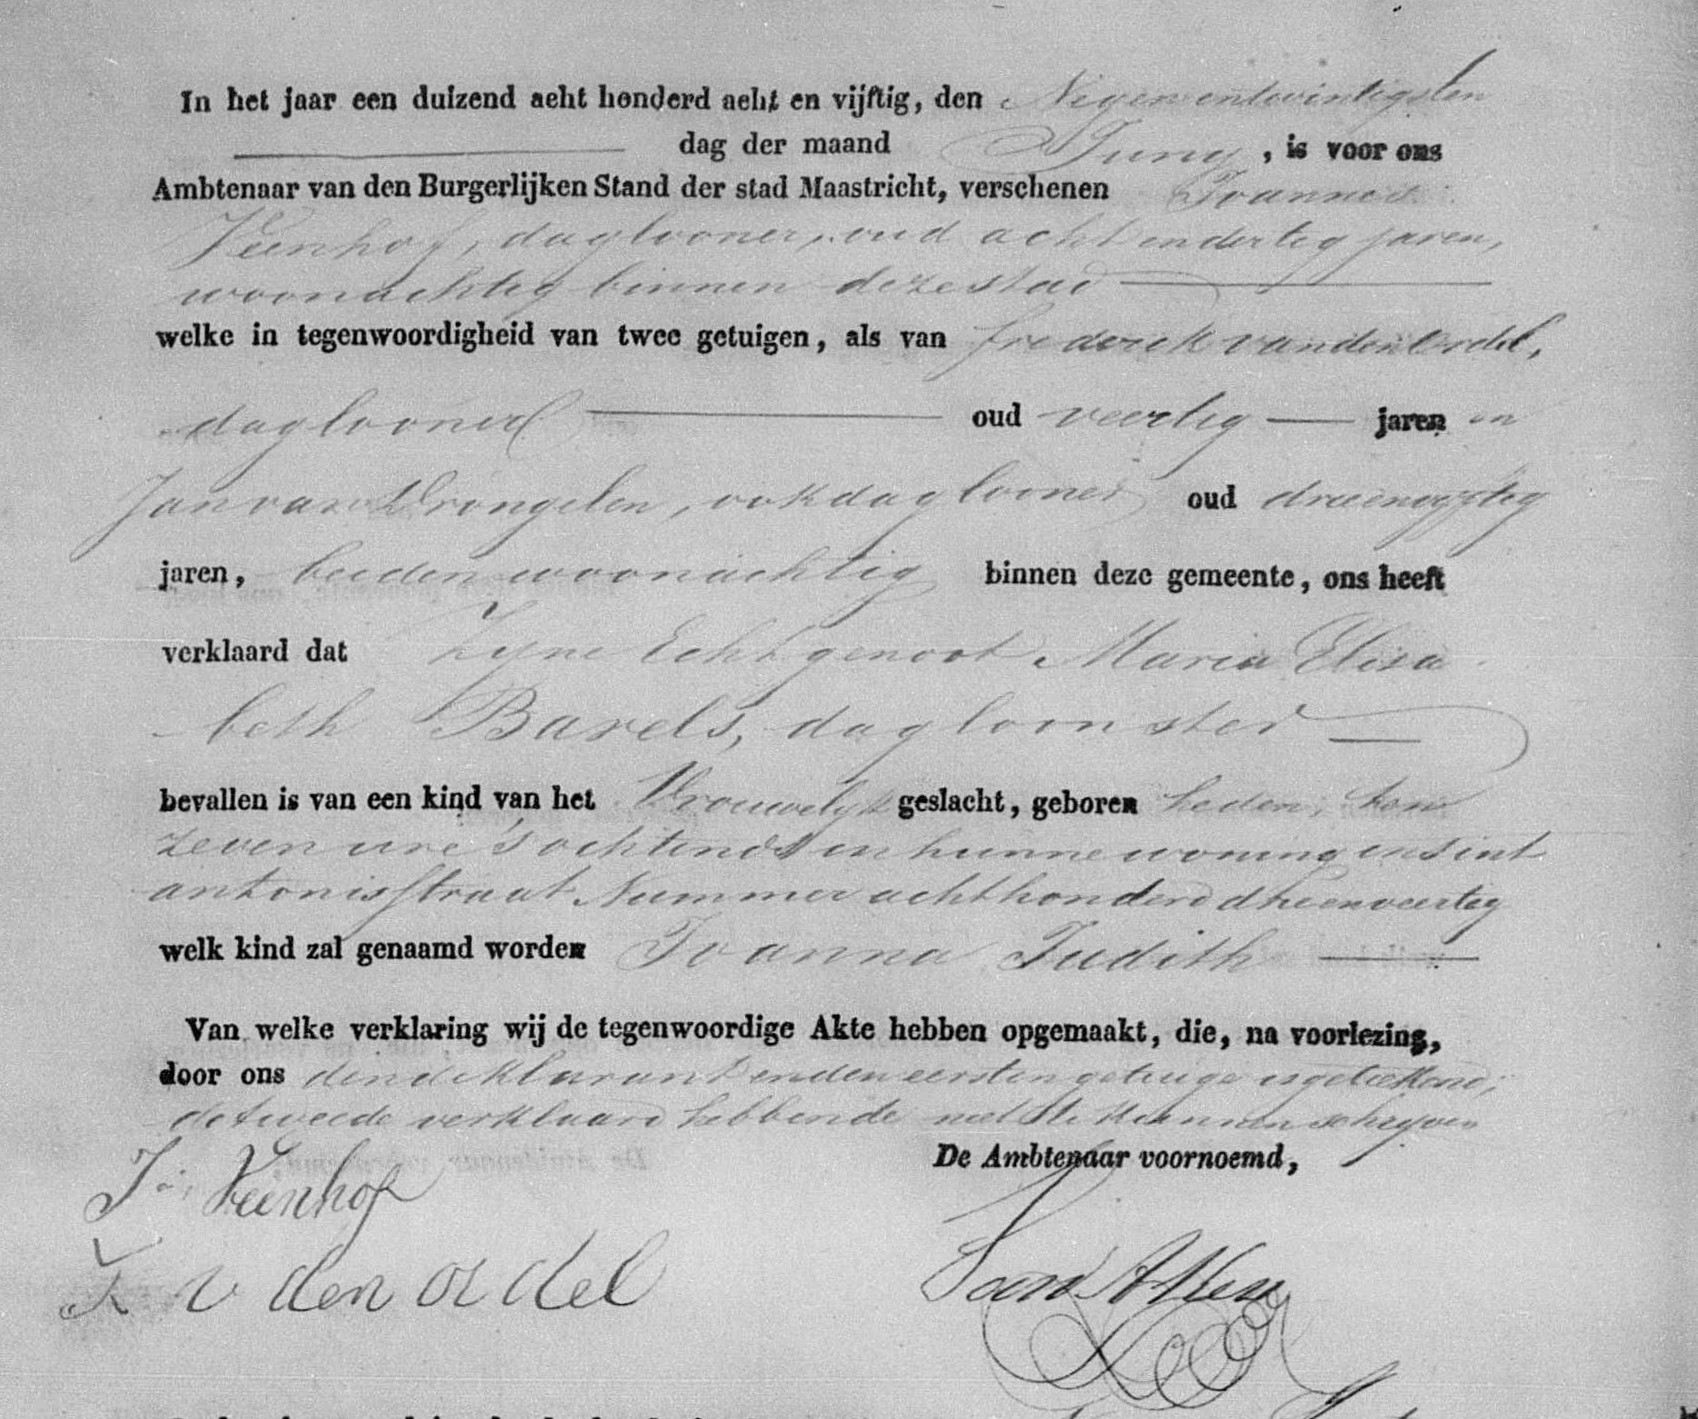 In het jaar een duizend acht honderd acht en vijftig, den Negenentwintigsten
dag der maand Juny, is voor ons
Ambtenaar van den Burgerlijken Stand der stad Maastricht, verschenen Joannes
Veenhof, daglooner, oud achtendertig jaren,
woonachtig binnen deze stad
welke in tegenwoordigheid van twee getuigen, als van frederik vanden ordel,
daglooner oud veertig jaren en
Jan van Drongelen, ook daglooner oud drieenvyftig
jaren, beiden woonachtig binnen deze gemeente, ons heeft
verklaard dat Zyne Echtgenoot Maria Elisa
beth Barels, dagloonster
bevallen is van een kind van het Vrouwelyk geslacht, geboren heden, ten
zeven ure 's ochtends in hunne woning in sint
antonisstraat Nummer achthonderd drieenveertig
welk kind zal genaamd worden Joanna Judith
Van welke verklaring wij de tegenwoordige Akte hebben opgemaakt, die, na voorlezing,
door ons den deklarant en den eersten getuige is geteekend,
de tweede verklaard hebbende niet te kunnen schryven
De Ambtenaar voornoemd,
J. Veenhof
F v den ordel